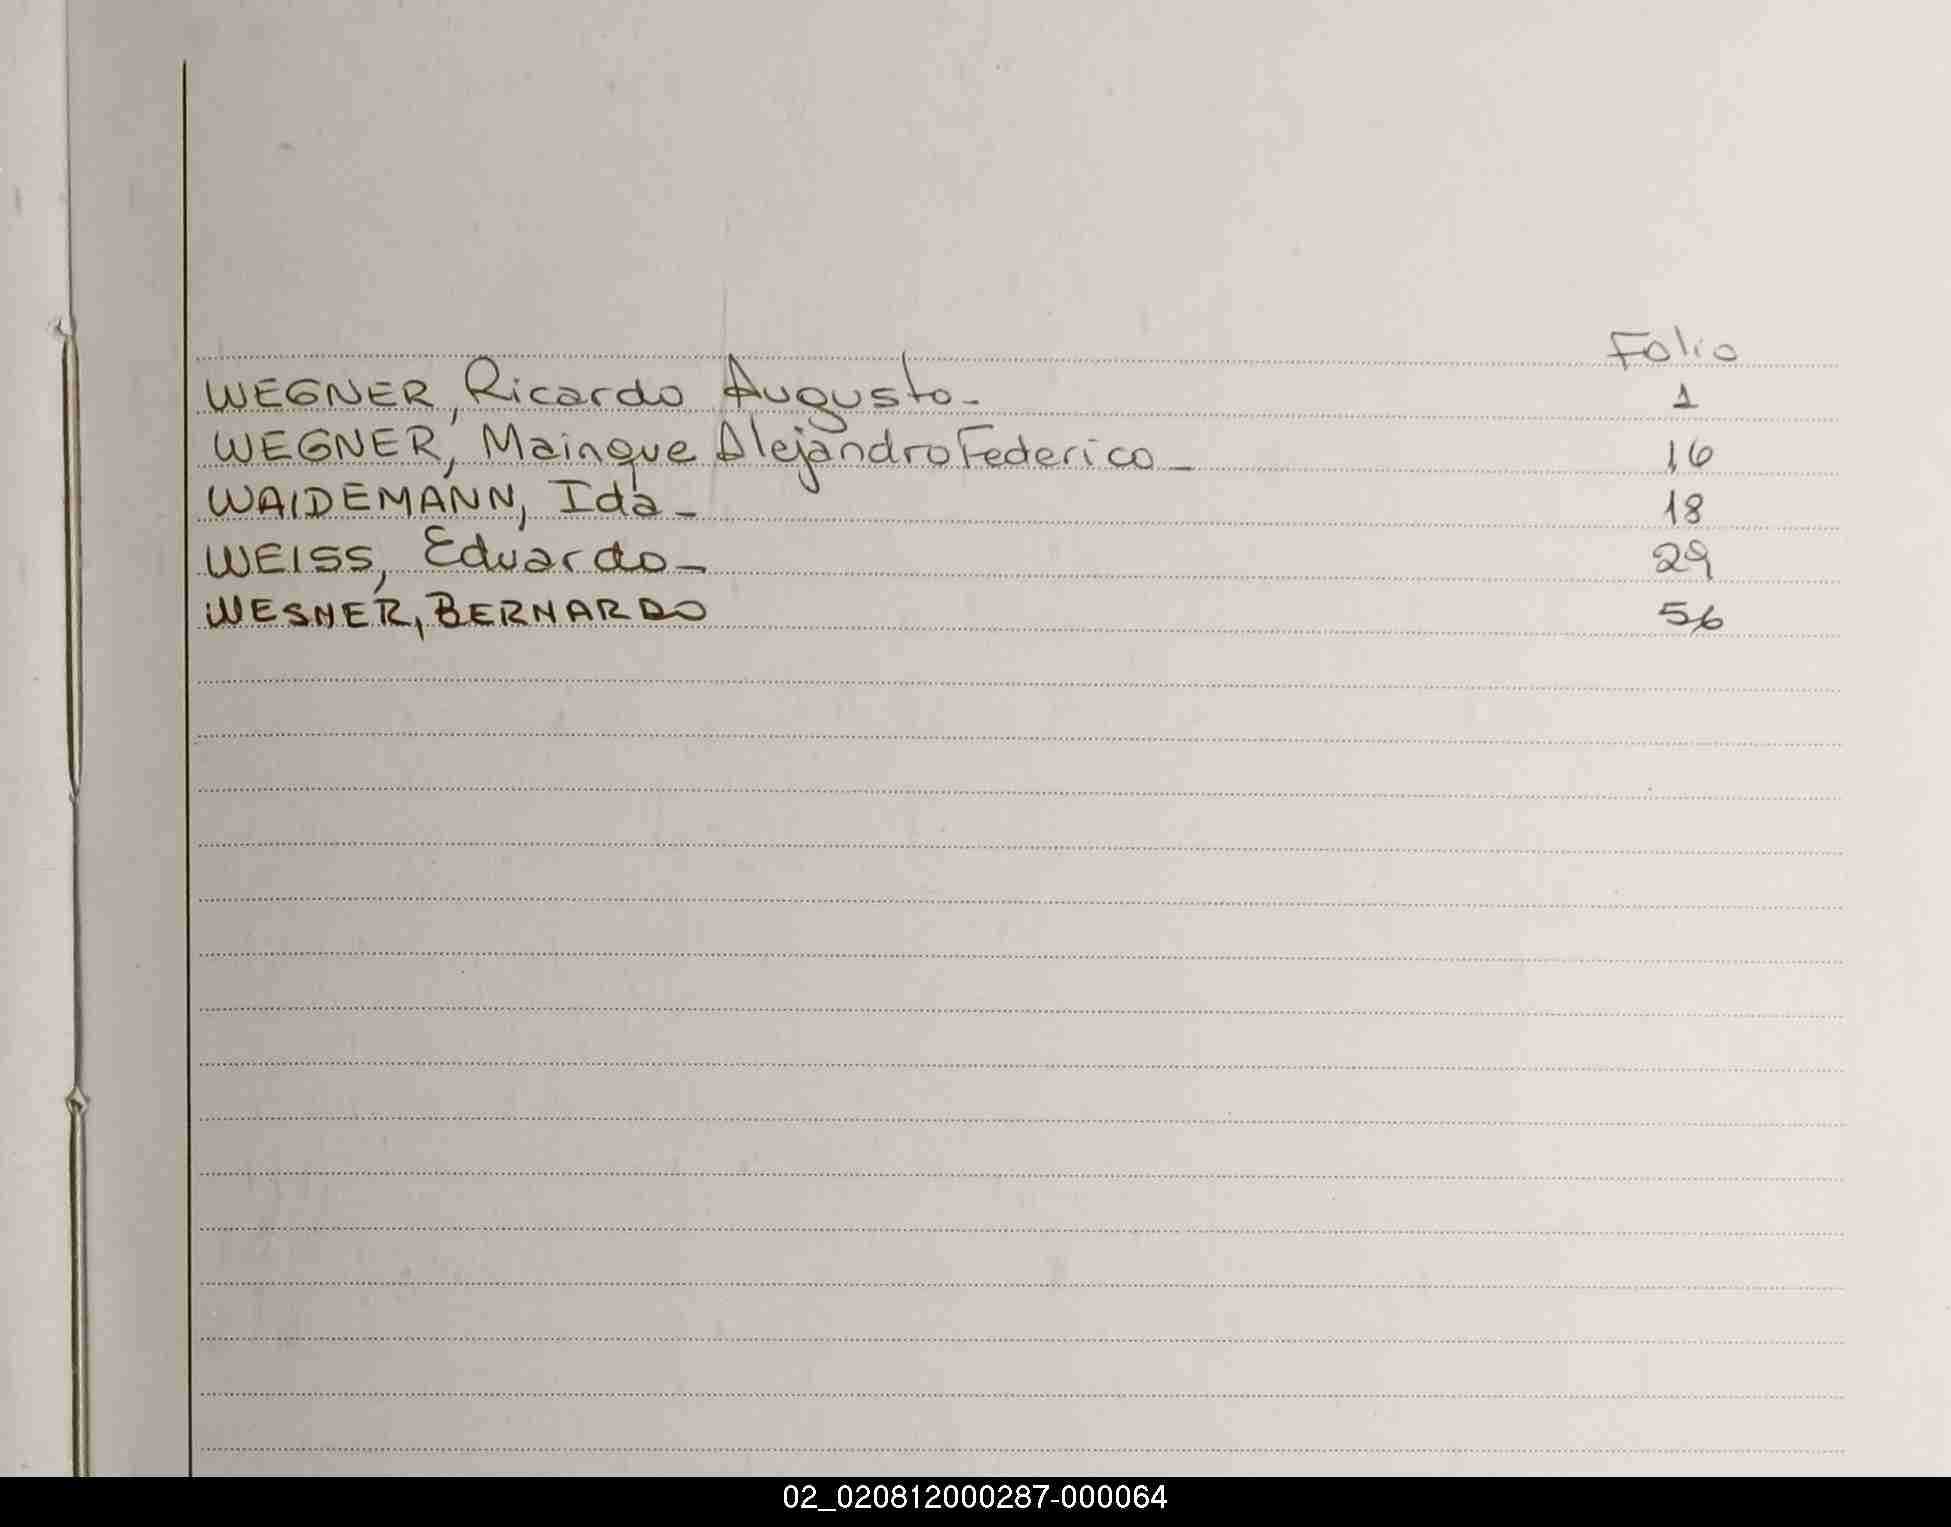 Folio
WEGNER, Ricardo Augusto- 1
WEGNER, Mainque Alejandro Federico- 16
WAIDEMANN, Ida- 18
WEISS, Eduardo- 29
WESNER, BERNARDO 56
02_020812000287-000064